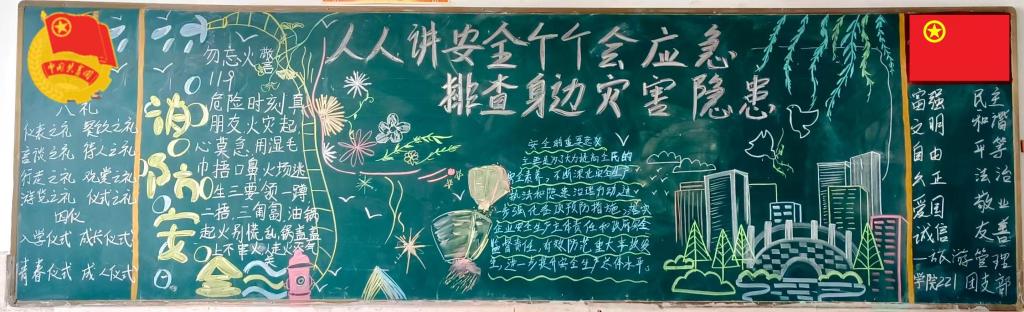 中国共青团
八礼
仪表之礼 餐饮之礼
言谈之礼 待人之礼
行走之礼 观赏之礼
游览之礼 仪式之礼
四仪
入学仪式 成长仪式
青春仪式 成人仪式
消防安全
勿忘火警
119
危险时刻真
朋友火灾起
心莫急用湿毛
巾捂口鼻火场逃
生三要领一蹲
二捂三匍匐油锅
起火别慌乱锅盖盖
上不窜火
人人讲安全个个会应急
排查身边灾害隐患
安全的重要意义
主要是为了大力提高全民的
安全素养,不断深化安全生产
执法和隐患治理行动,进一
步强化各项预防措施,落实
企业安全生产主体责任和政府安全
监督责任,有效防范重大事故发
生,进一步提升安全生产总体水平。
富强 民主
文明 和谐
自由 平等
公正 法治
爱国 敬业
诚信 友善
—旅游管理
学院221团支部